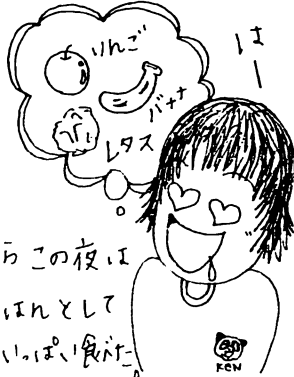 はー
りんご
バナナ
レタス
らこの夜は
はんとして
いっぱい食べた。
KEN